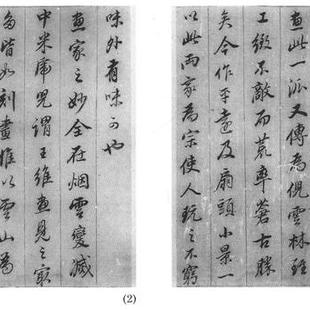 畫此一派又傳為倪雲林雖
工緻不敵而荒率蒼古勝
矣今作平遠及扇頭小景一
以此兩家為宗使人玩之不窮
味外有味可也
畫家之妙全在烟雲變滅
中米虎児謂王維畫見之最
多皆如刻畫惟以雲山為
(2)